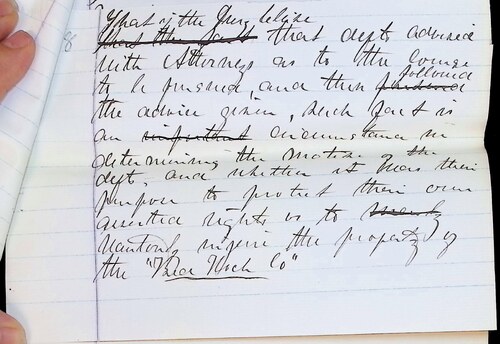 8 That if the Jury believe
that the fact that defts advised
with Attorneys as to the course
to be pursued, and then followed
the advice given, such fact is
an important circumstance in
determining the motive of the
deft, and whether it was their
purpose to protect their own
asserted rights or to
wantonly injure the property of
the " Co"